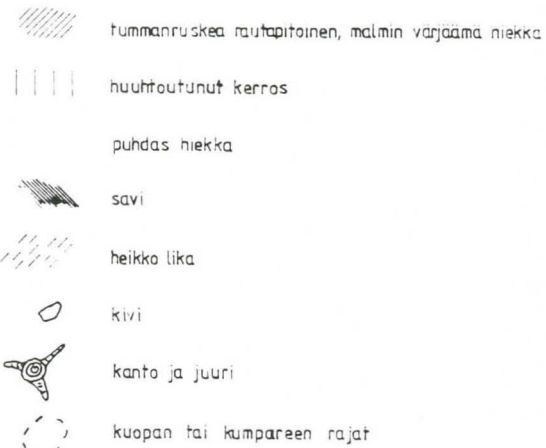 tummanruskea rautapitoinen, malmin värjäämä hiekka
huuhtoutunut kerros
puhdas hiekka
savi
heikko lika
kivi
kanto ja juuri
kuopan tai kumpareen rajat